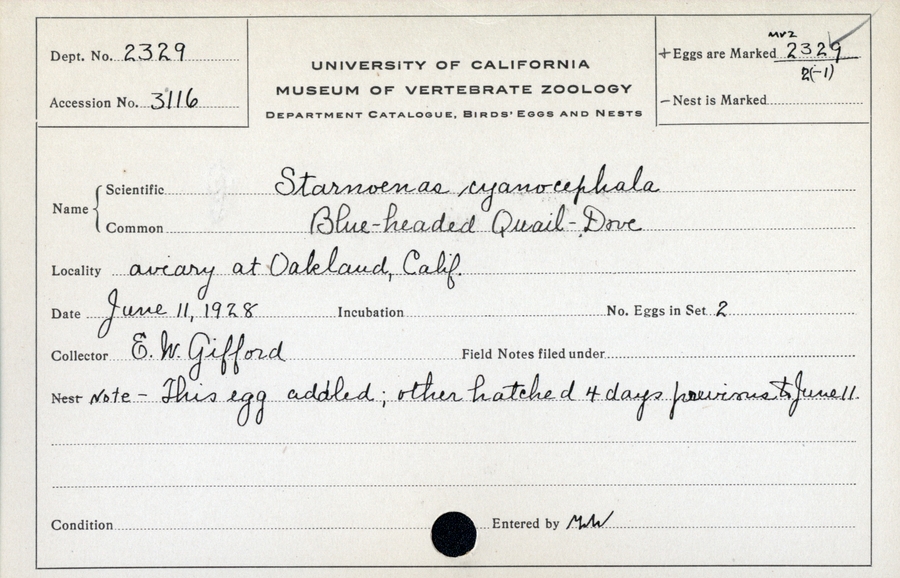 Dept. No. 2329
Accession No. 3116
UNIVERSITY OF CALIFORNIA
MUSEUM OF VERTEBRATE ZOOLOGY
DEPARTMENT CATALOGUE, BIRDS' EGGS AND NESTS
MVZ
+Eggs are Marked 2329
2(-1)
-Nest is Marked
Name
Scientific Starnoenas cyanocephala
Common Blue-headed Quail-Dove
Locality aviary at Oakland, Calif.
Date June 11, 1928 Incubation No. Eggs in Set 2
Collector E. W. Gifford Field Notes filed under
Nest Note - This egg addled; other hatched 4 days previous to June 11.
Condition Entered by